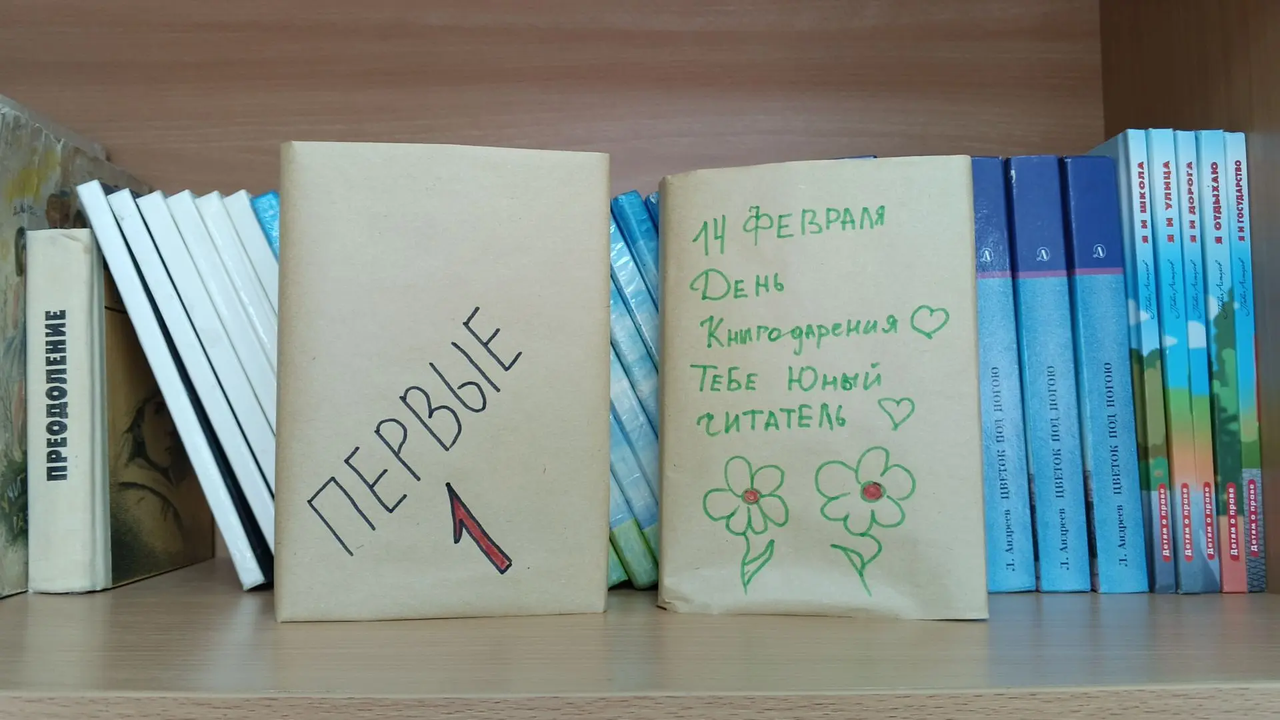 ПРЕОДОЛЕНИЕ
ПЕРВЫЕ
1
14 ФЕВРАЛЯ
ДЕНЬ
Книгодарения
ТЕБЕ Юный
ЧИТАТЕЛЬ
Л. Андреев ЦВЕТОК ПОД НОГОЮ
Л. Андреев ЦВЕТОК ПОД НОГОЮ
Л. Андреев ЦВЕТОК ПОД НОГОЮ
Я И ШКОЛА
Детам о праве
Я И УЛИЦА
Детям о праве
Я И ДОРОГА
Детям о праве
Я ОТДЫХАЮ
Детям о праве
Я И ГОСУДАРСТВО
Детям о праве